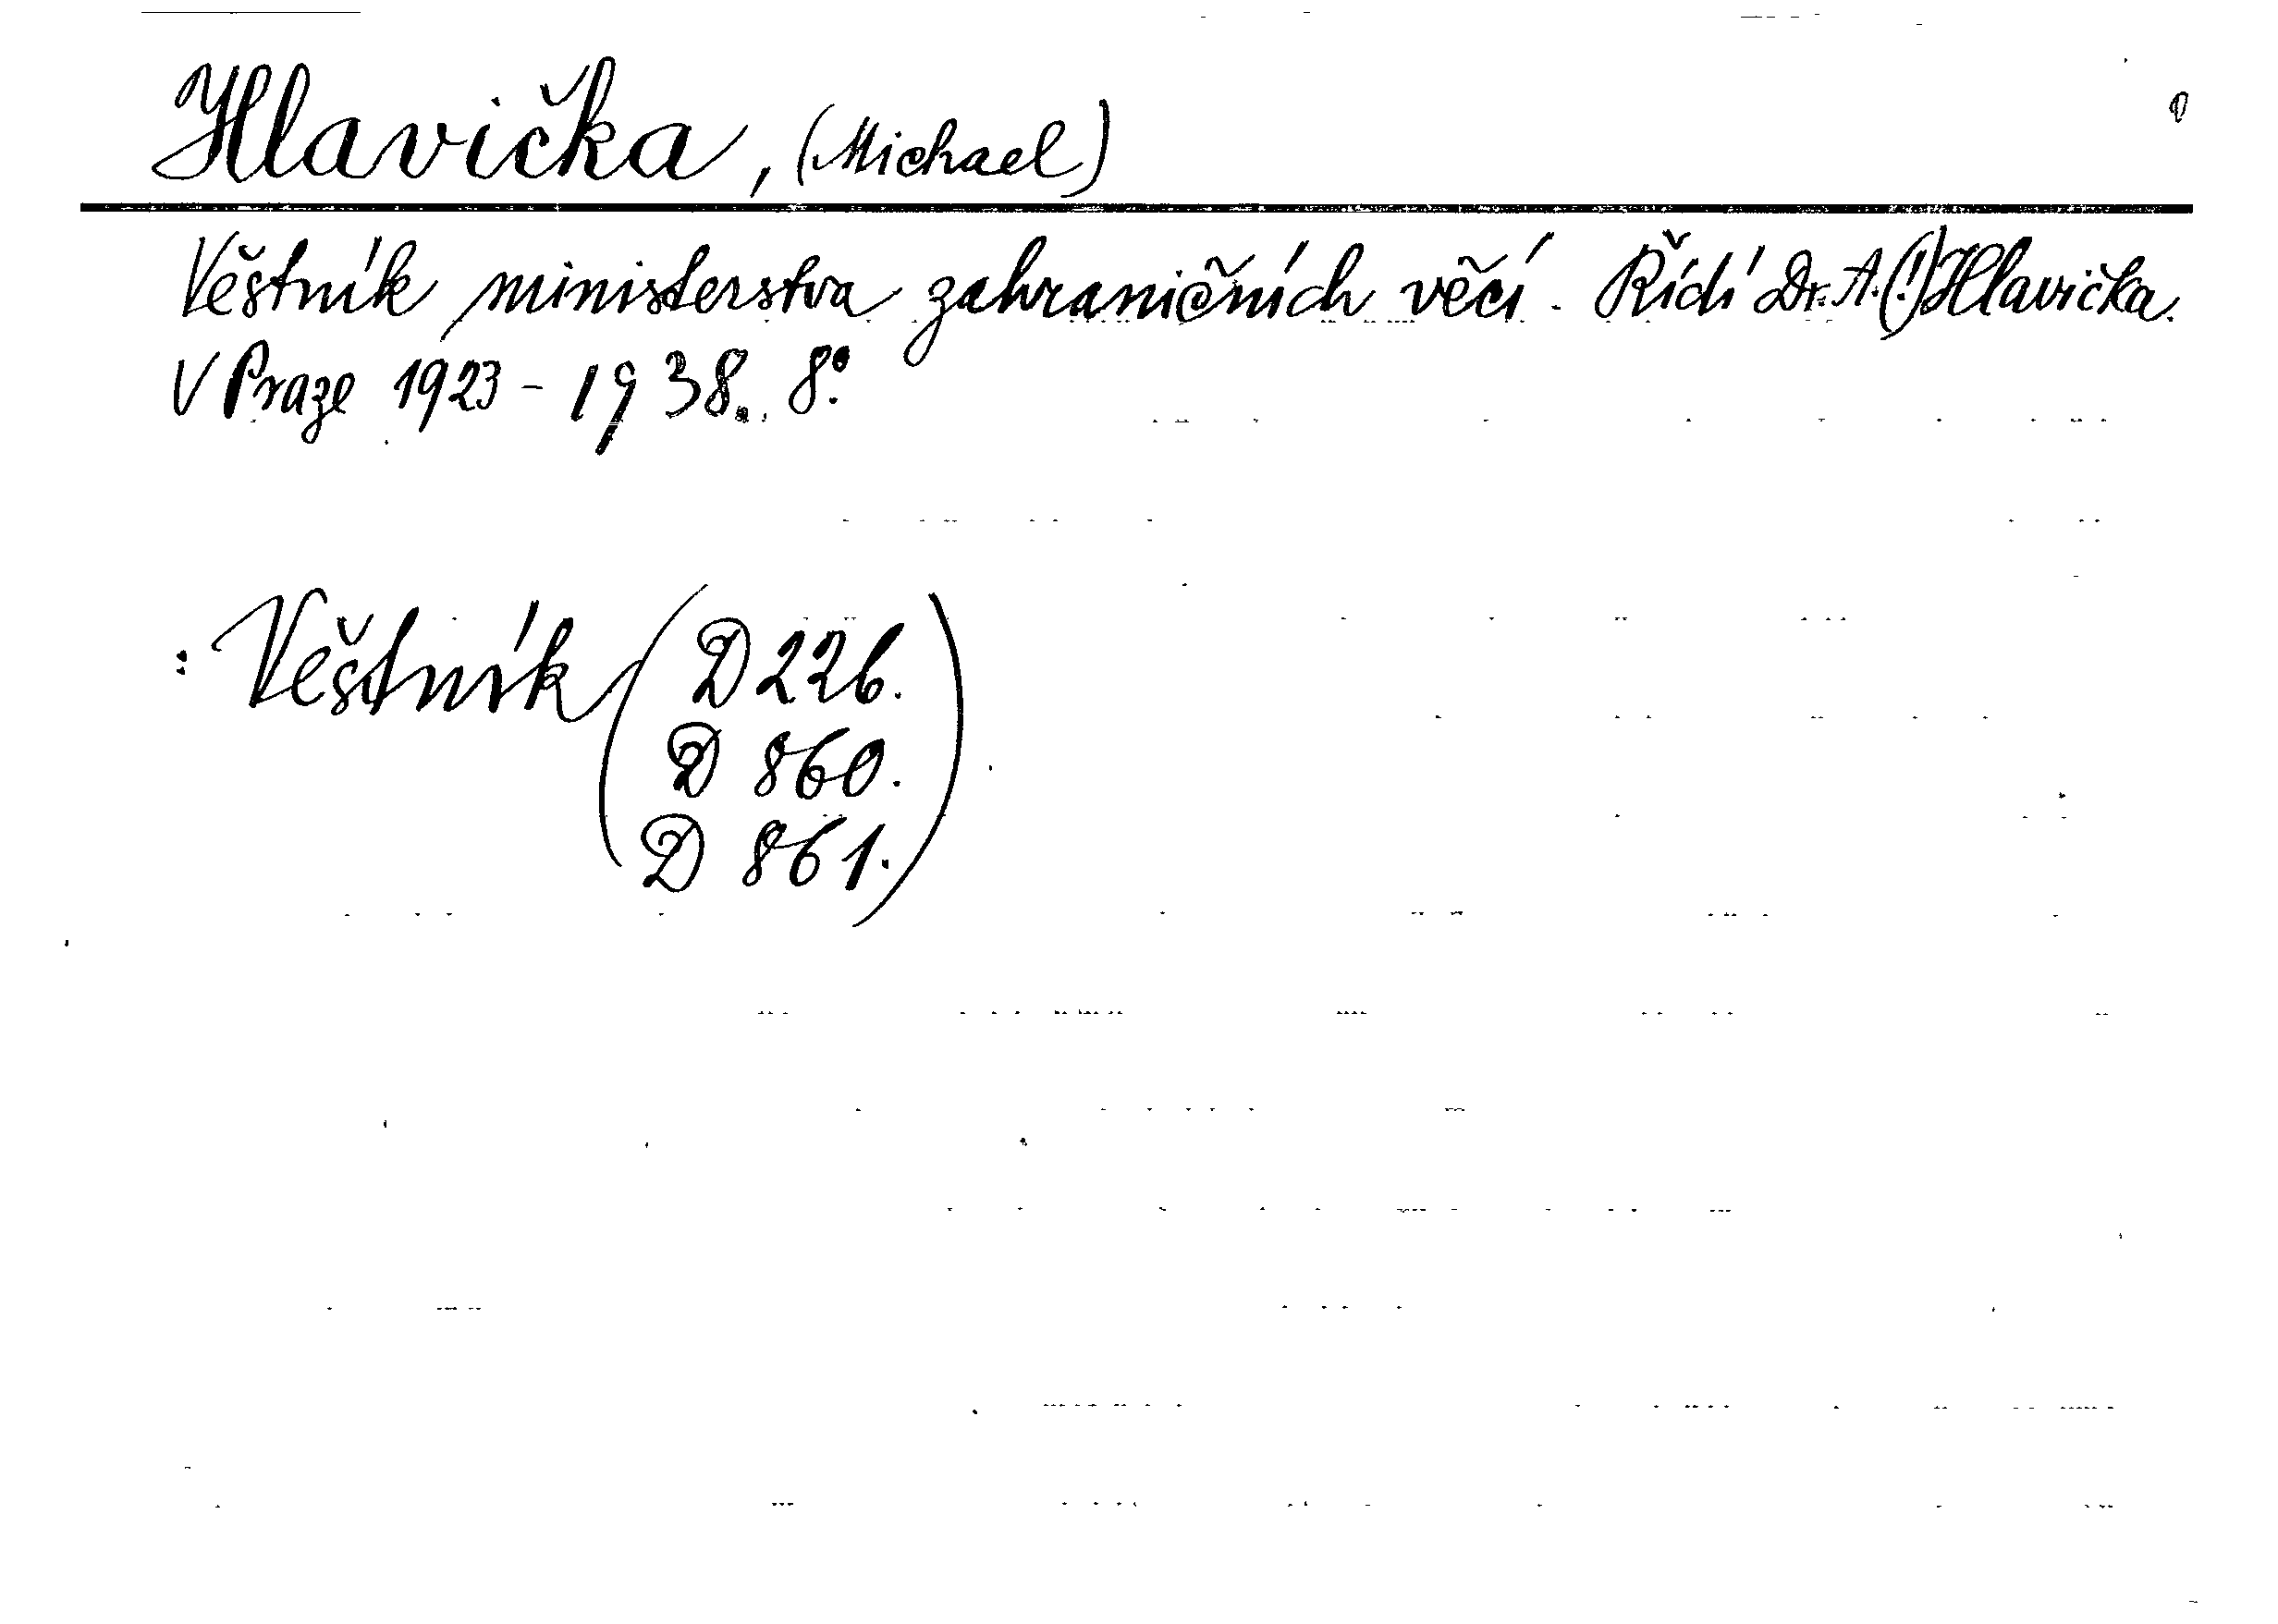 Hlavička, (Michael)
Věštník ministerstva zahraničních věcí. Řídí Dr. A.(!) Hlavička.
V Praze 1923-1938. 8°.
: Věštník (D 226.
D 860.
D 861.)